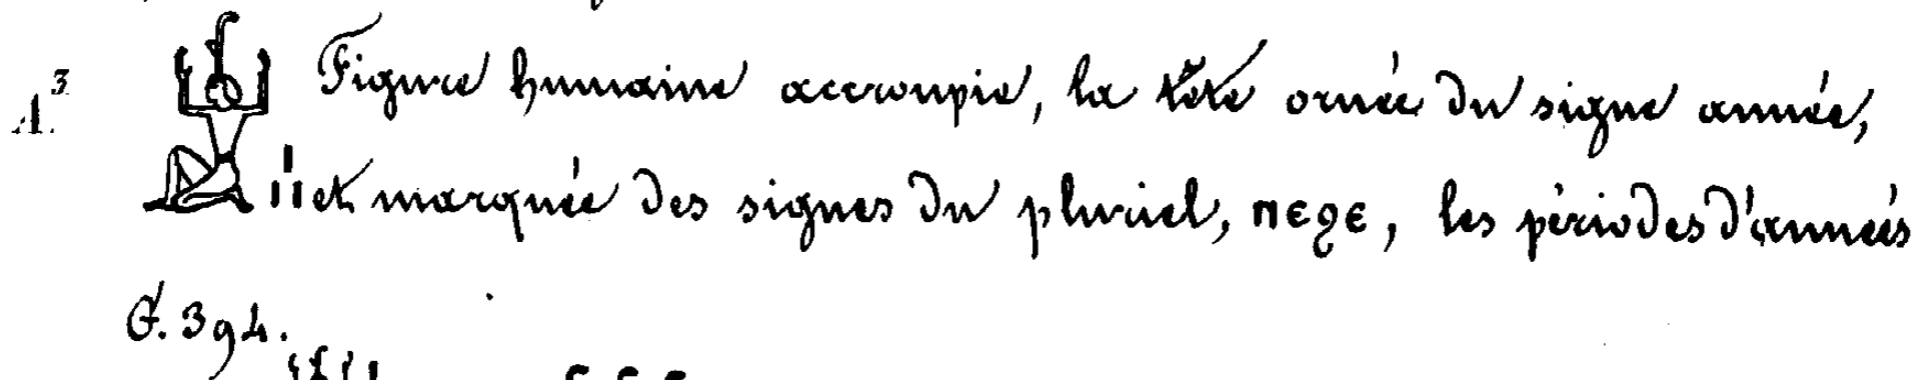 A³. 𓁨 Figure humaine accroupie, la tête ornée du signe année,
et marquée des signes du pluriel, ⲡⲉϩⲉ, les périodes d'années
G. 394.